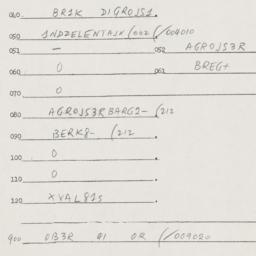 040 BR1K DIGROJS1.
050 1NDZELENTAJK(002(/004010
051 — 052 AGROJS3R
060 0 061 BREG+
070 0
080 AGROJS3RBARG2-(212
090 BERK8- (212
100 0
110 0
120 XVAL81S
900 OB3R @1 OR (/009020